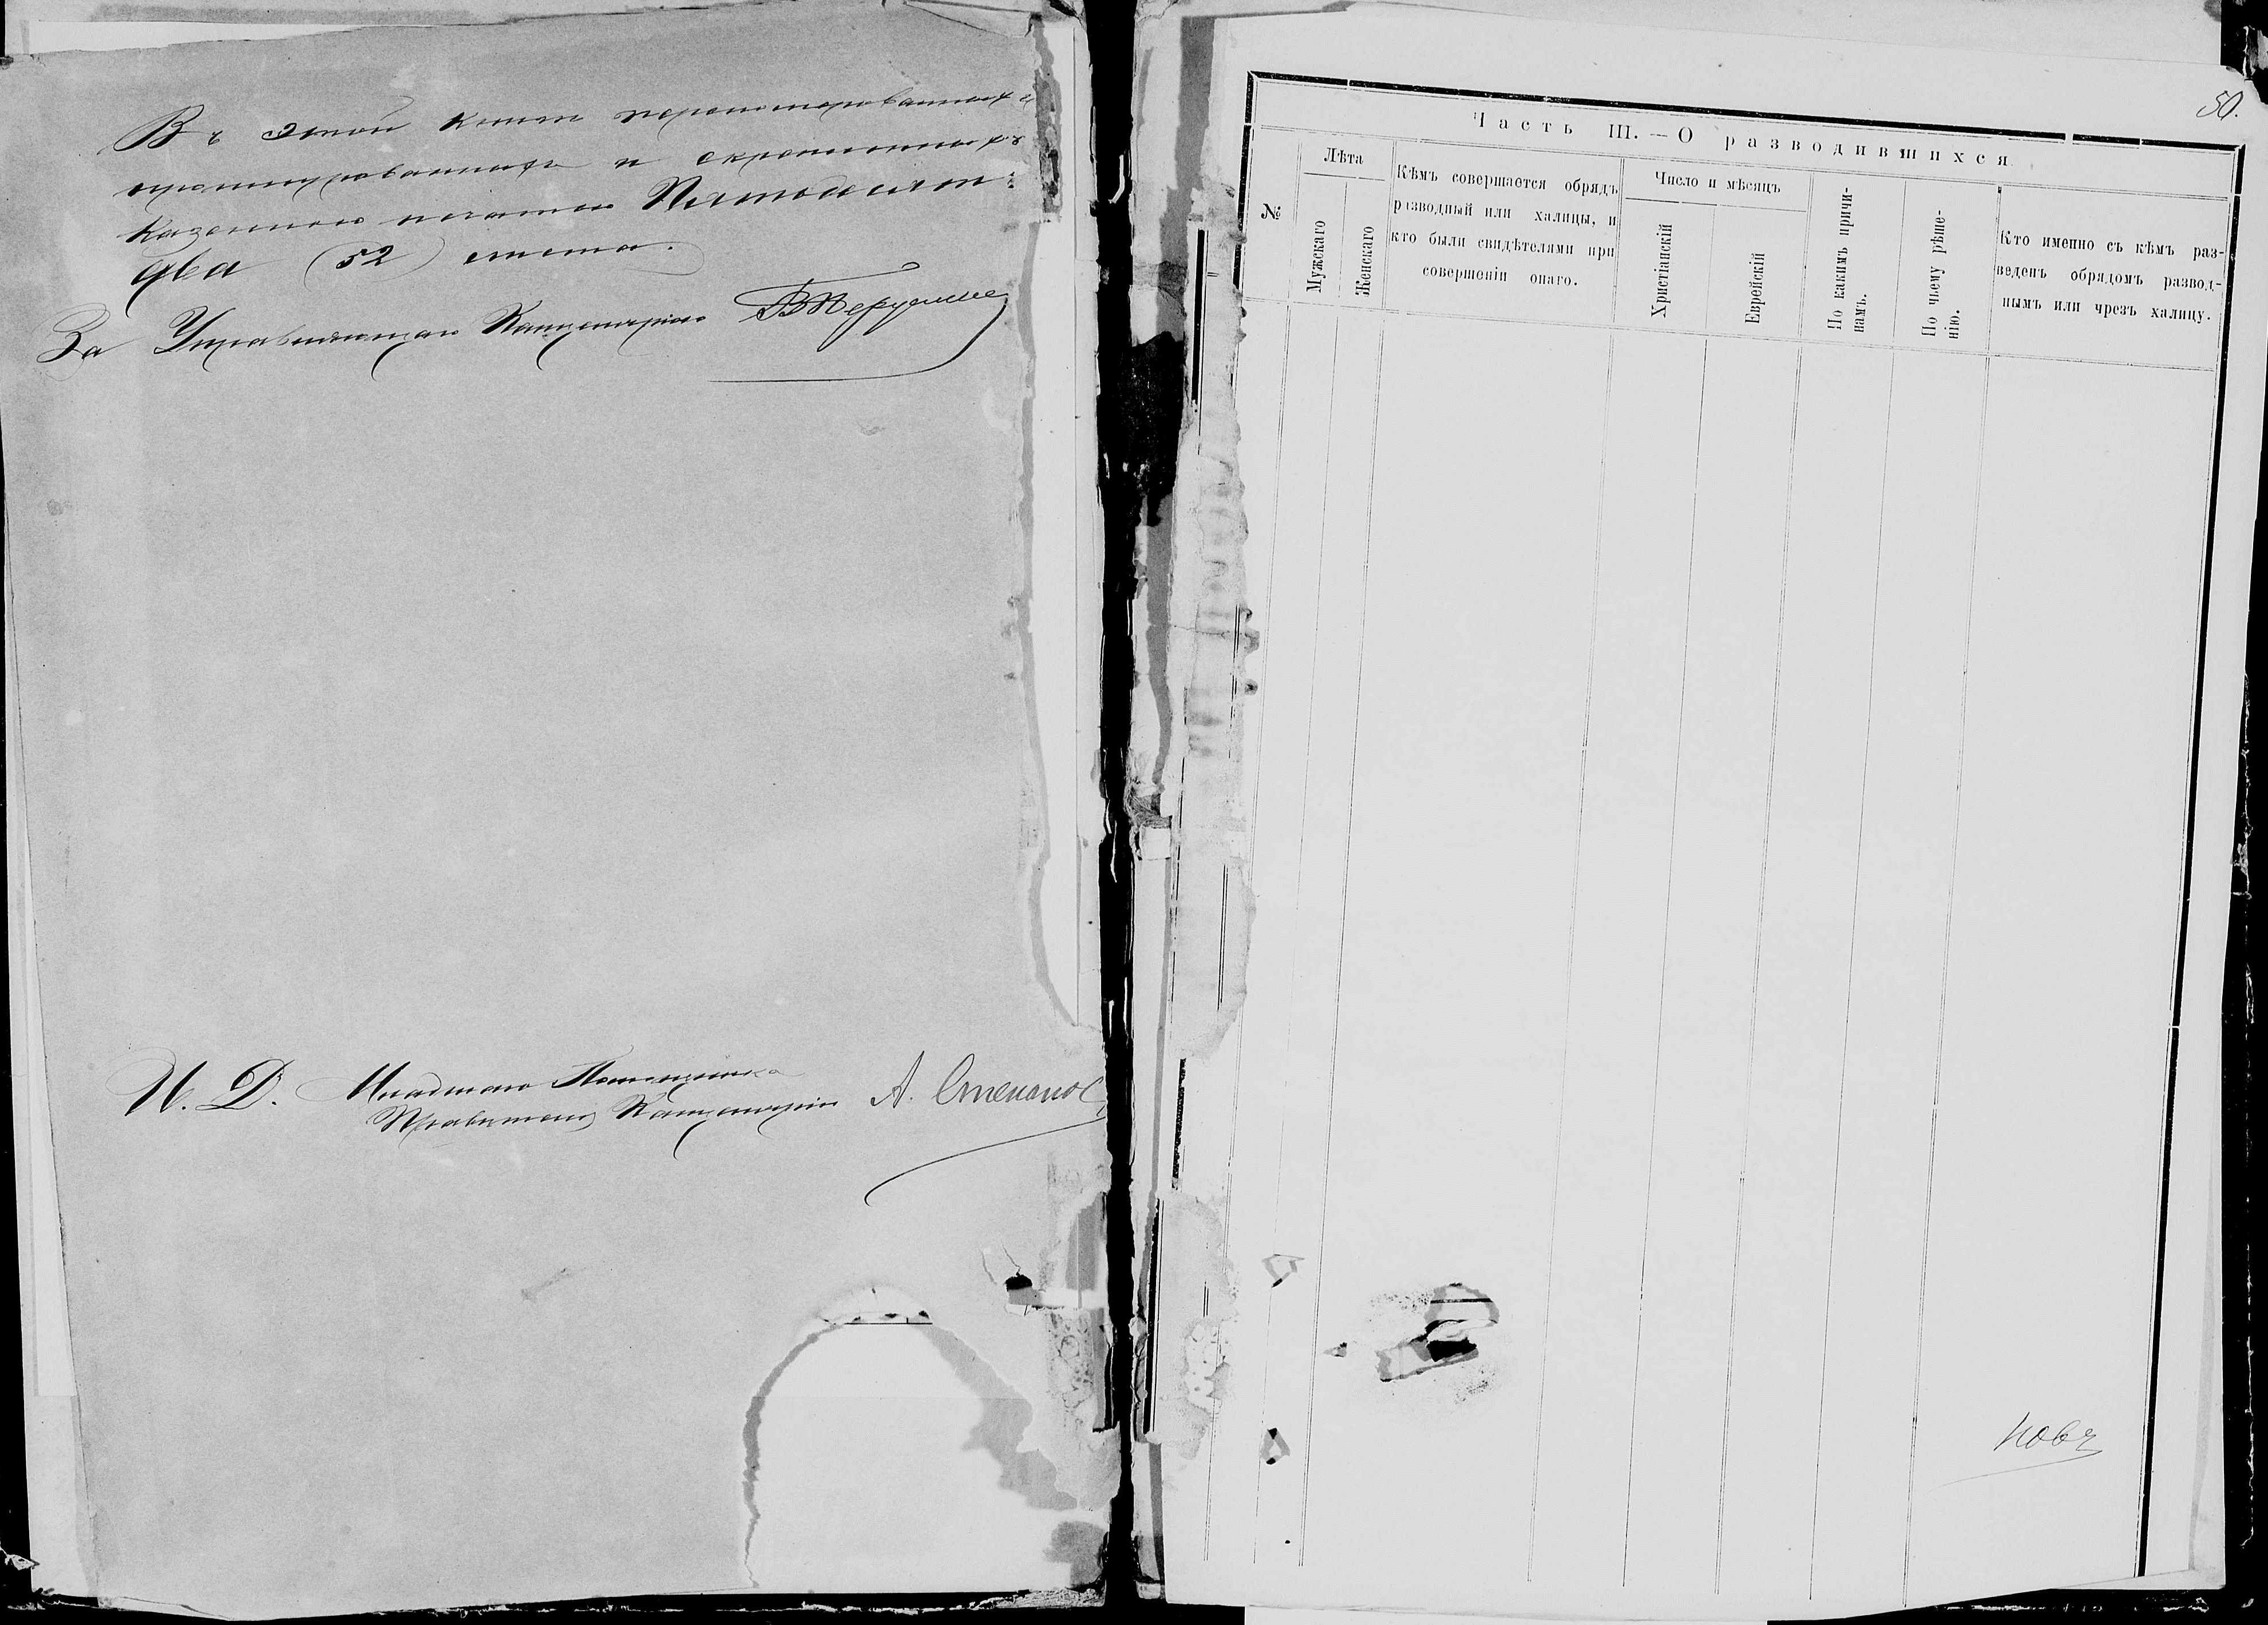 Въ этой книгѣ перенумерованныхъ
пронумерованныхъ и скрепленныхъ
казенною печатью Пятьдесятъ
два (52) листа.
За Управляющаго Канцеляріею
И. Д. Младшаго Помощника
Правителя Канцеляріи А. Степанов
50.
Часть III. — О разводившихся
№
Лѣта
Мужскаго
Женскаго
Кѣмъ совершается обрядъ
разводный или халицы, и
кто были свидѣтелями при
совершеніи онаго.
Число и мѣсяцъ
Христіанскій
Еврейскій
По какимъ причи-
намъ.
По чьему рѣше-
нію.
Кто именно съ кѣмъ раз-
веденъ обрядомъ развод-
нымъ или чрезъ халицу.
новъ